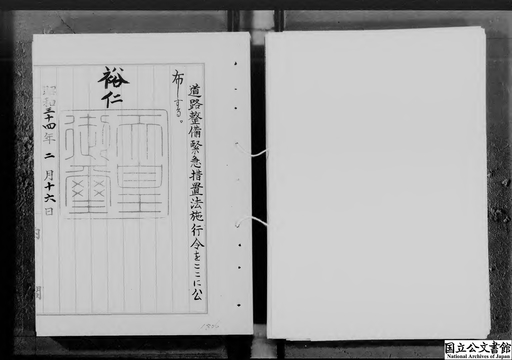 道路整備緊急措置法施行令をここに公
布する。
裕仁
天皇御璽
昭和三十四年二月十六日
内閣
国立公文書館
National Archives of Japan